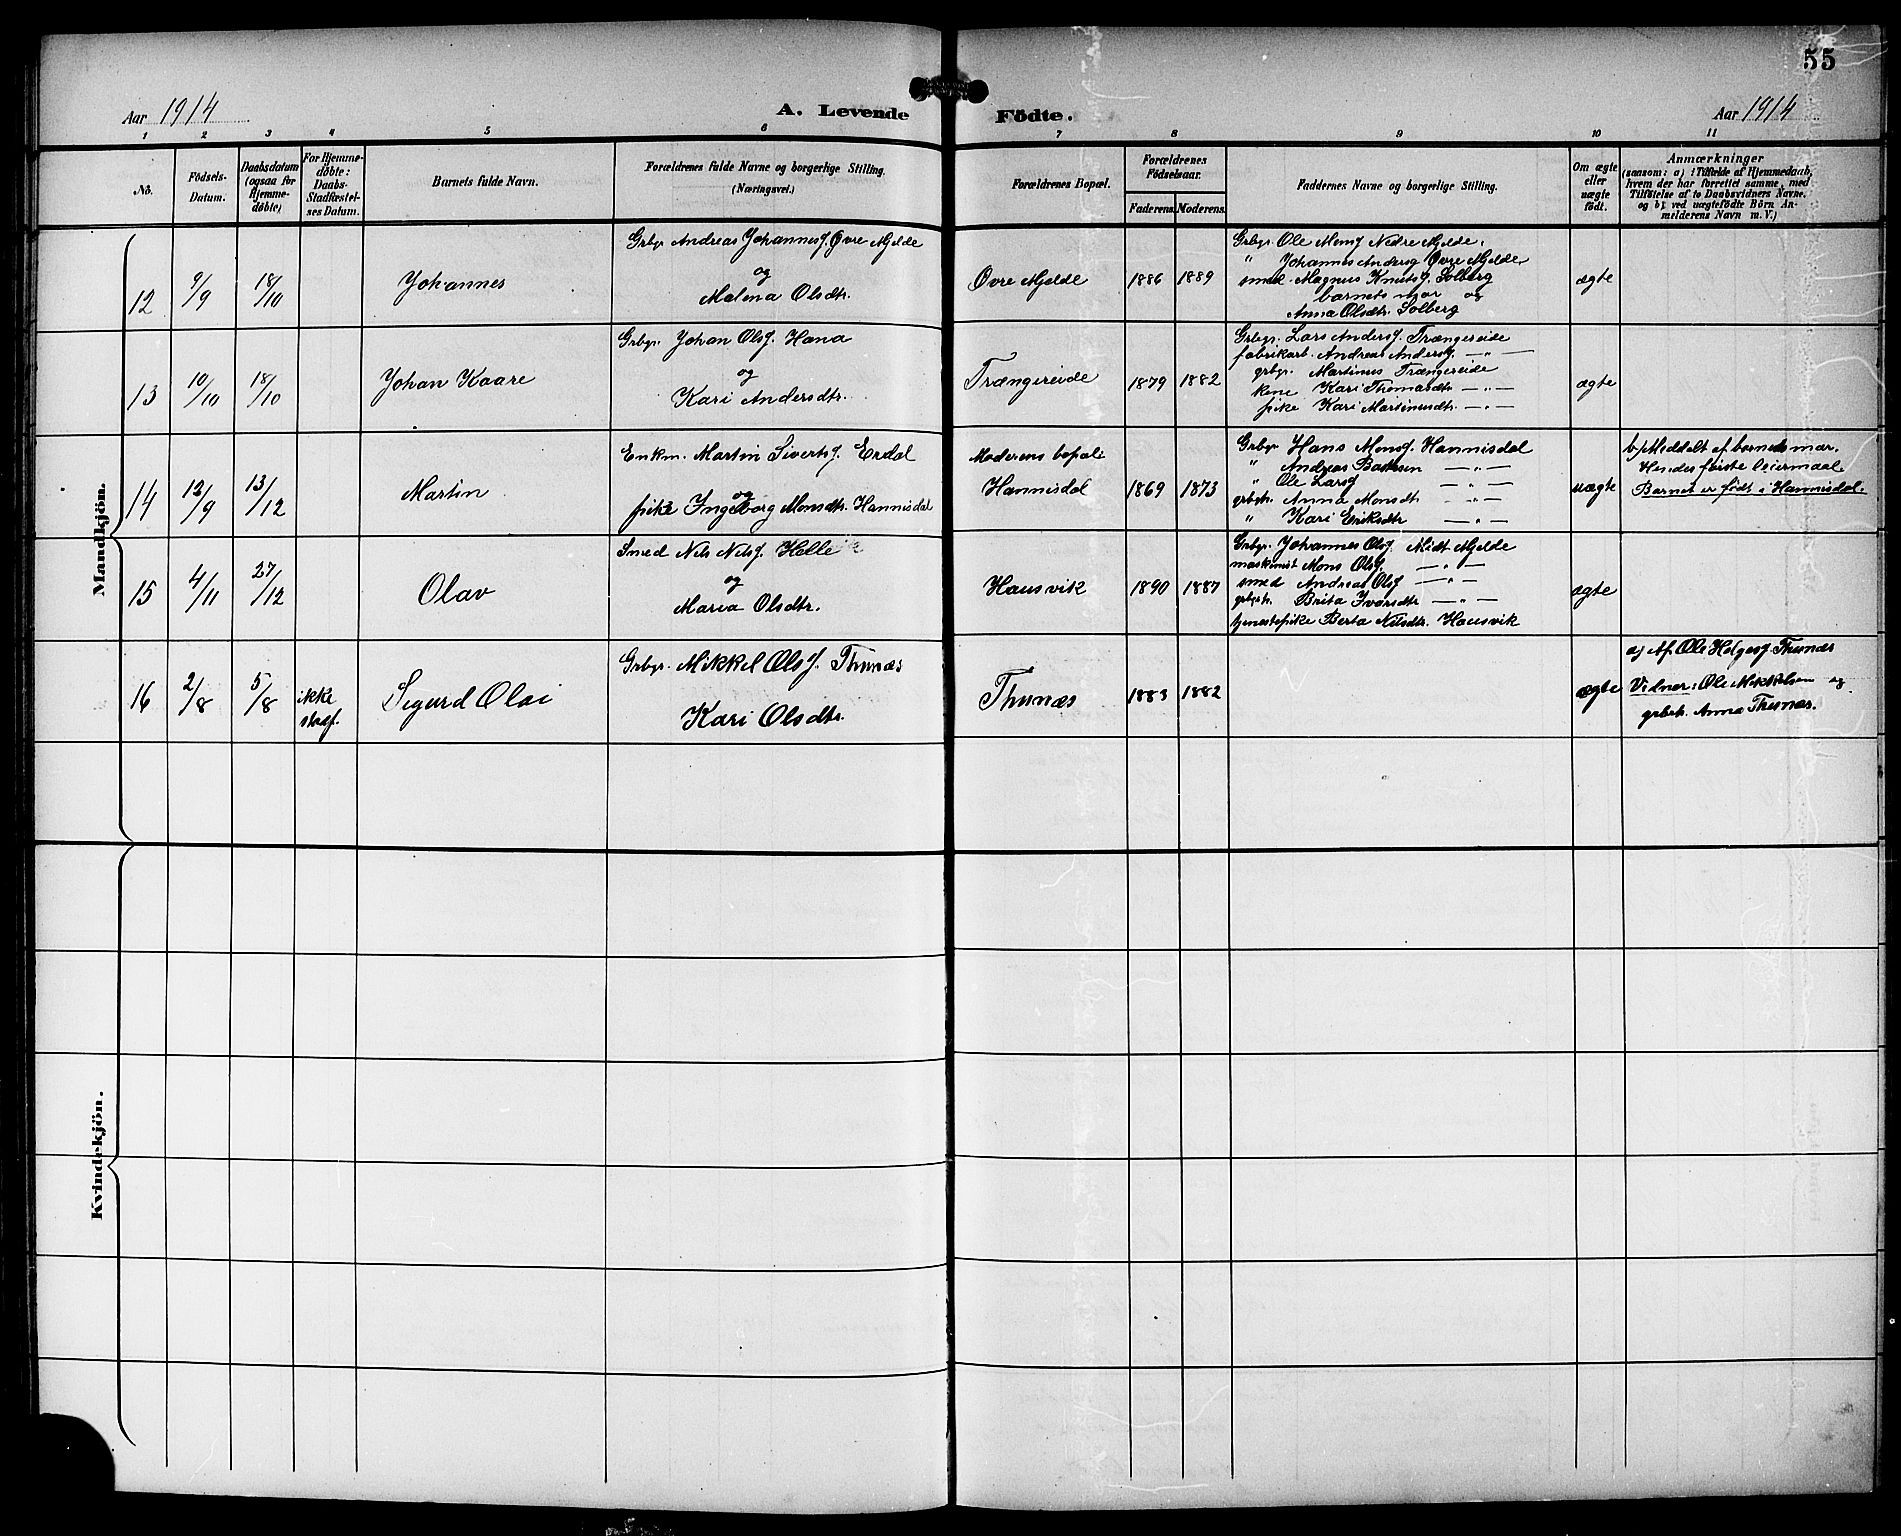 55
Aar 1914
A. Levende Födte.
Aar 1914
1 2 3 4 5 6 7 8 9 10 11
No.
Födsels-Datum.
Daabsdatum (ogsaa for Hjemme-döbte)
For Hjemme-döbte: Daabs-Stadfæstel-ses Datum.
Barnets fulde Navn.
Forældrenes fulde Navne og borgerlige Stilling.
(Næringsvei.)
Forældrenes Bopæl.
Forældrenes Födselsaar.
Faderens. Moderens.
Faddernes Navne og borgerlige Stilling.
Om ægte eller uægte födt.
Anmærkninger
(saasom: a) i Tilfælde af Hjemmedaab,
hvem der har forrettet samme, med
Tilföielse af to Daabsvidners Navne,
og b) ved uægtefödte Börn An-
melderens Navn m. V.)
Mandkjön.
12 9/9 18/10 Johannes
Grbr. Andreas Johannesf. Øvre Mjelde
og
Malena Olsdtr.
Øvre Mjelde 1886 1889
Grbr. Ole Monsf. Nedre Mjelde,
" Johannes Andersf. Øvre Mjelde,
smed Magnus Knutsf. Solberg
barnets mor og
Anna Olsdtr. Solberg
ægte
13 10/10 18/10 Johan Kaare
Grbr. Johan Olsf. Hana
og
Kari Andersdtr.
Trængereide 1879 1882
Grbr. Lars Andersf. Trængereide
fabrikarb. Andreas Andersf. — " —
grbr. Martinus Trængereide
kone Kari Thomasdtr. — " —
pike Kari Martinusdtr. — " —
ægte
14 12/9 13/12 Martin
Enkm. Martin Sivertsf. Erdal
og
pike Ingeborg Monsdtr. Hannisdal
Moderens bopæl:
Hannisdal 1869 1873
Grbr. Hans Monsf. Hannisdal
" Andreas — " —
" Ole Larsf. — " —
grbrk. Anna Monsdtr — " —
" Kari Eriksdtr — " —
uægte
b) Meddelt af barnets mor.
Hendes første leiermaal.
Barnet er født i Hannisdal.
15 4/11 27/12 Olav
Smed Nils Nilsf. Helle
og
Maria Olsdtr.
Hausvik 1890 1887
Grbr. Johannes Olsf. Midt Mjelde
maskinist Mons Olsf. — " —
smed Andreas Olsf — " —
grbrk. Brita Ivarsdtr — " —
tjenestepike Berta Nilsdtr. Hausvik
ægte
16 2/8 5/8 ikke stadf. Sigurd Olai
Grbr. Mikkel Olsf. Thunæs
Kari Olsdtr.
Thunæs 1883 1882
ægte
a) Af Ole Helgesf. Thunæs
Vidner: Ole Mikkelsen og
grbrk. Anna Thunæs.
Kvindekjön.